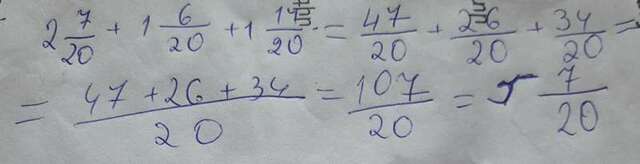 2 7/20 + 1 6/20 + 1 14/20 = 47/20 + 26/20 + 34/20 =
= 47 + 26 + 34/20 = 107/20 = 5 7/20